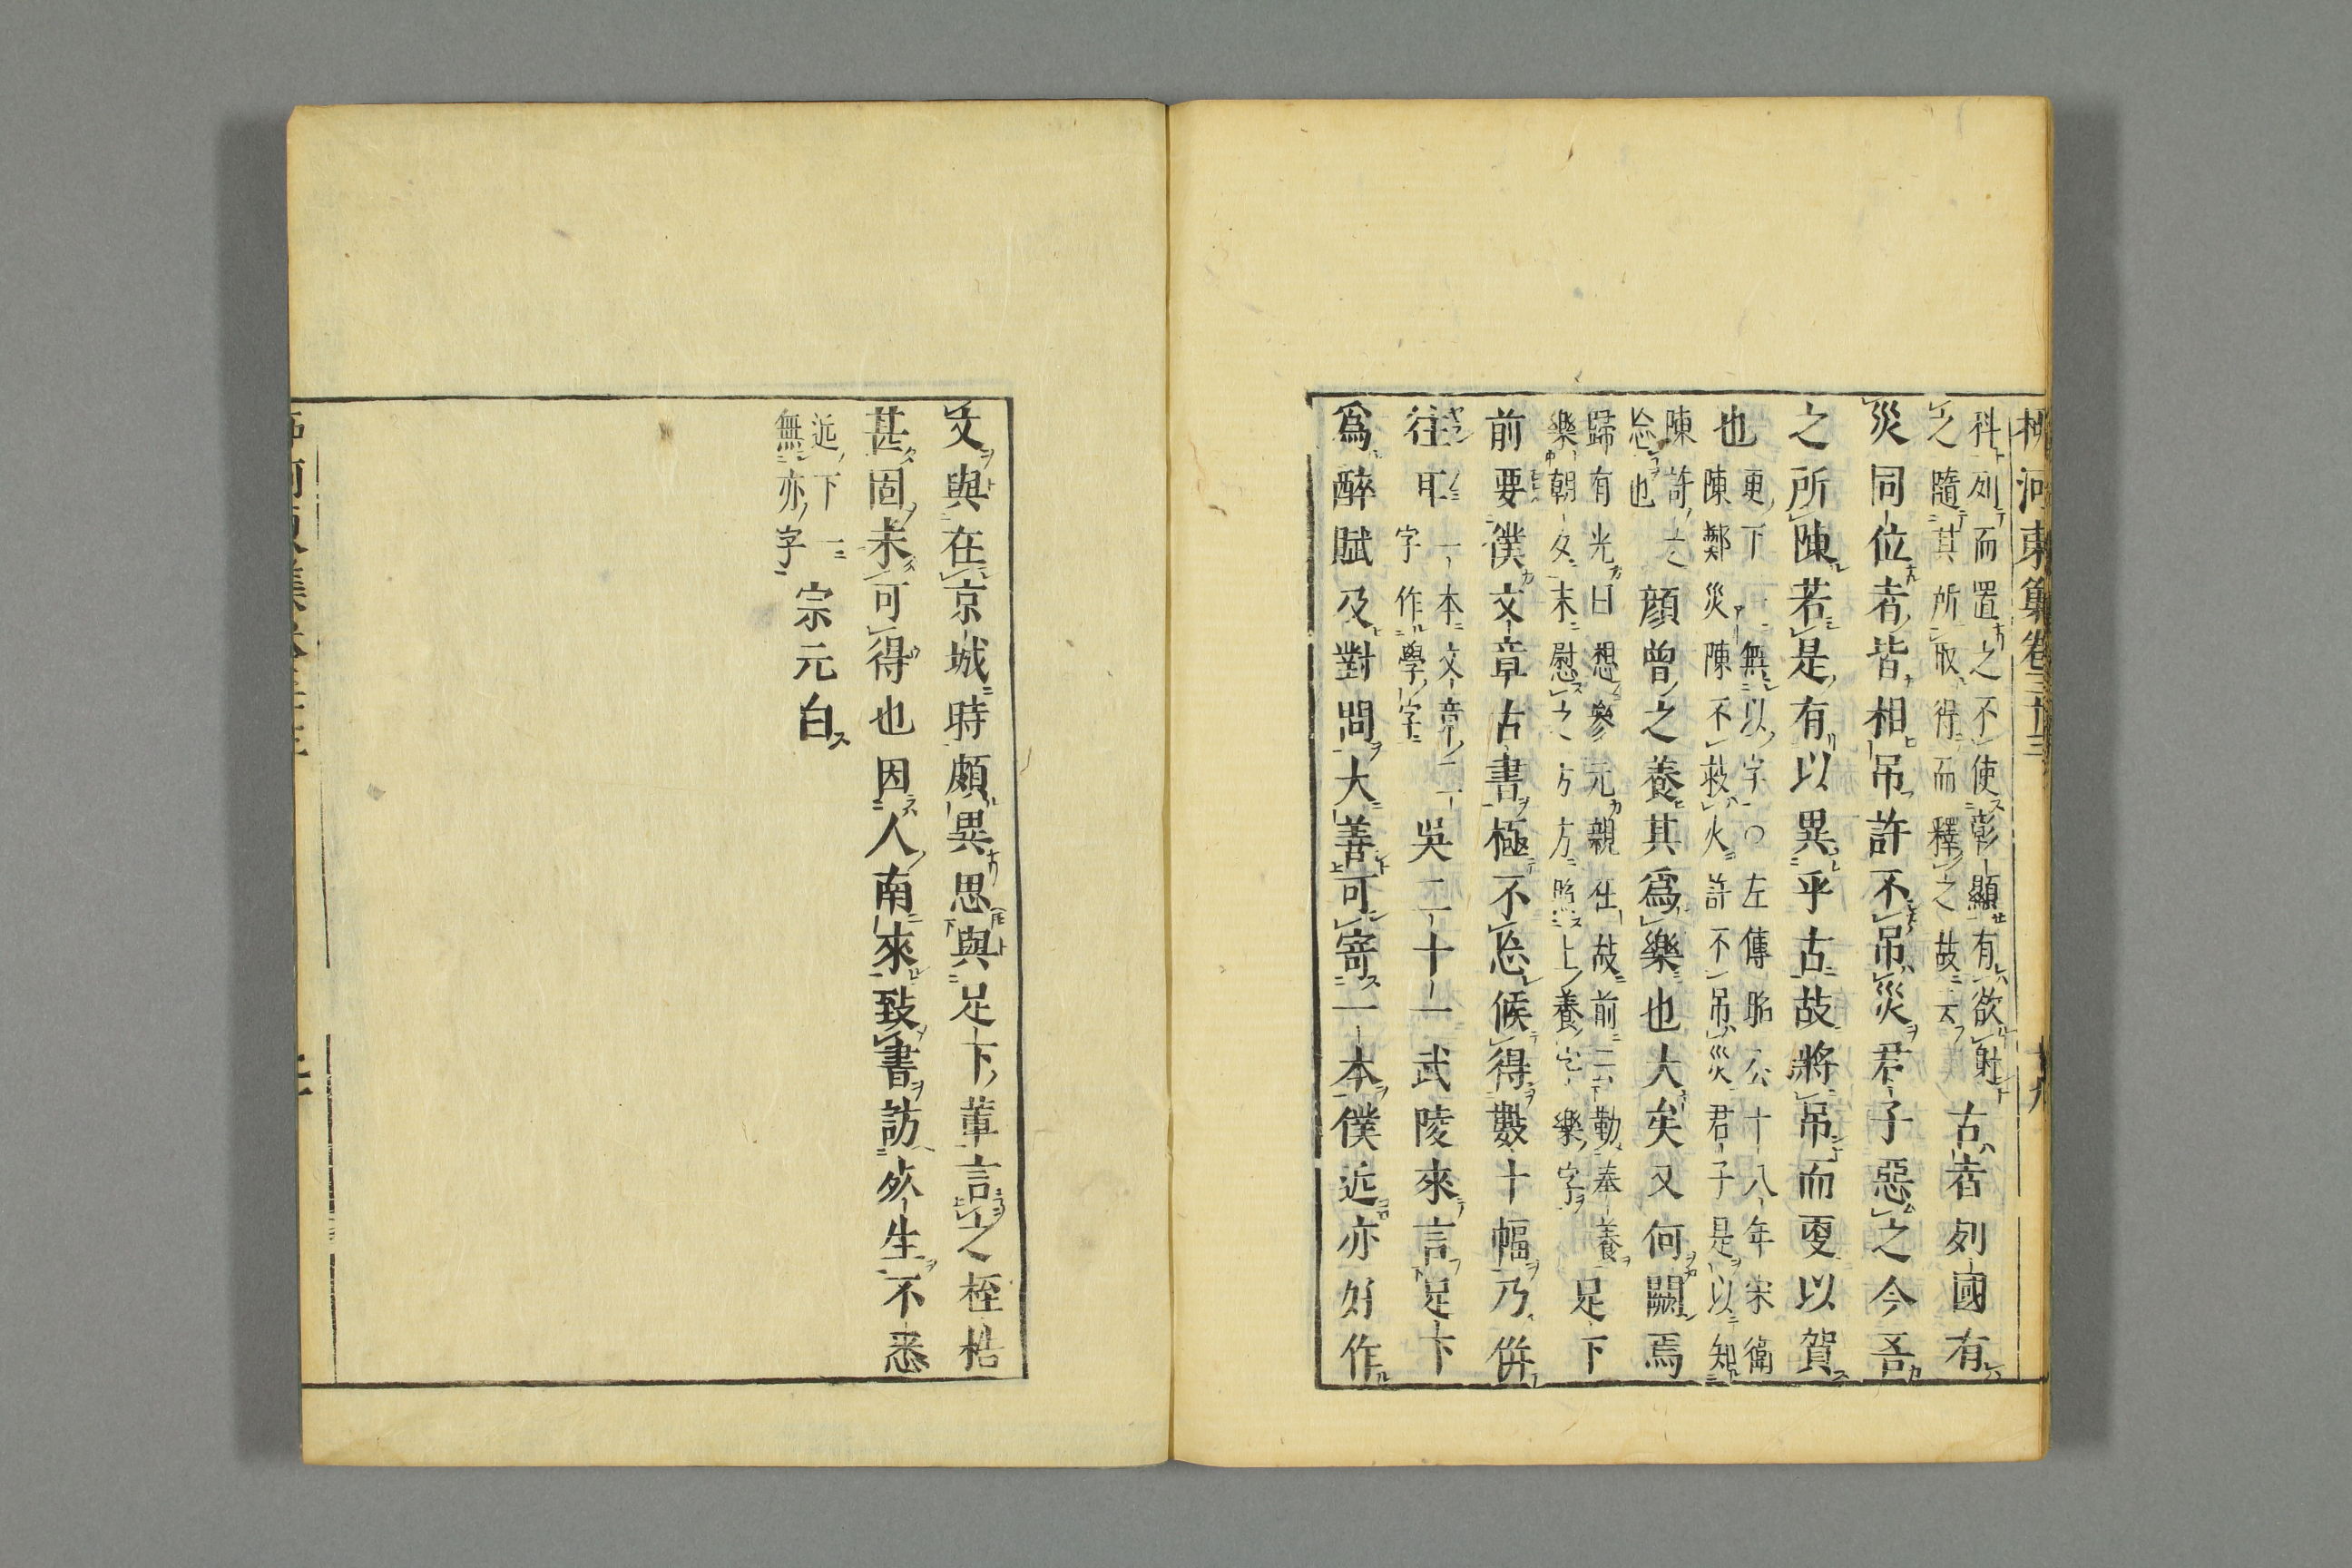 柳河東集卷三十三
十九
科列而置之不使彰顯有欲射
之隨其所取得而釋之故云
古者列國有
災同位者皆相吊許不吊災君子惡之今吾
之所陳若是有以異乎古故將吊而更以賀
也
更下一無以字○左傳昭公十八年宋衛
陳鄭災陳不救火許不吊災君子是以知
陳許之
亾也
顔曾之養其爲樂也大矣又何闕焉
歸有光曰想參元親在故前云勤奉養
樂朝夕末慰之方照上養字樂字
足下
前要僕文章古書極不忘候得數十幅乃併
往耳
一本文章一
字作學字
吳二十一武陵來言足下
爲醉賦及對問大善可寄一本僕近亦好作
文與在京城時頗異思與足下輩言之桎梏
甚固未可得也因人南來致書訪死生不悉
近下一
無亦字
宗元白